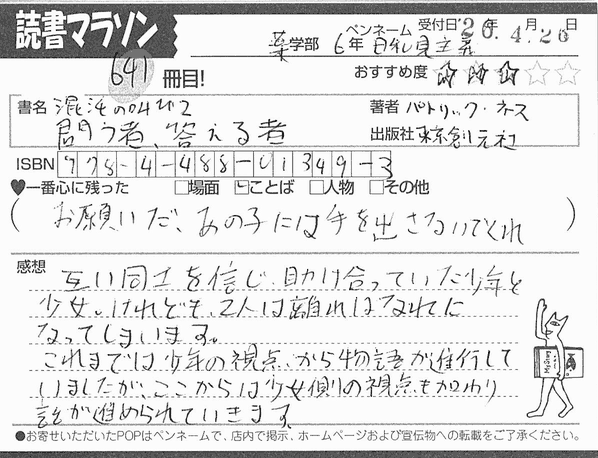 読書マラソン
641 冊目!
薬学部 6年 ペンネーム 日和見主義 受付日'26年4月26日
おすすめ度 ☆☆☆☆☆
書名 混沌の叫び2
問う者、答える者
著者 パトリック・ネス
出版社 東京創元社
ISBN 978-4-488-01349-3
♥一番心に残った □場面 □ことば □人物 □その他
(お願いだ、あの子には手を出さないでくれ)
感想
互い同士を信じ、助け合っていた少年と
少女。けれども、2人は離ればなれに
なってしまいます。
これまでは少年の視点から物語が進行して
いましたが、ここからは少女側の視点も加わり
話が進められていきます。
●お寄せいただいたPOPはペンネームで、店内で掲示、ホームページおよび宣伝物への転載をご了承ください。